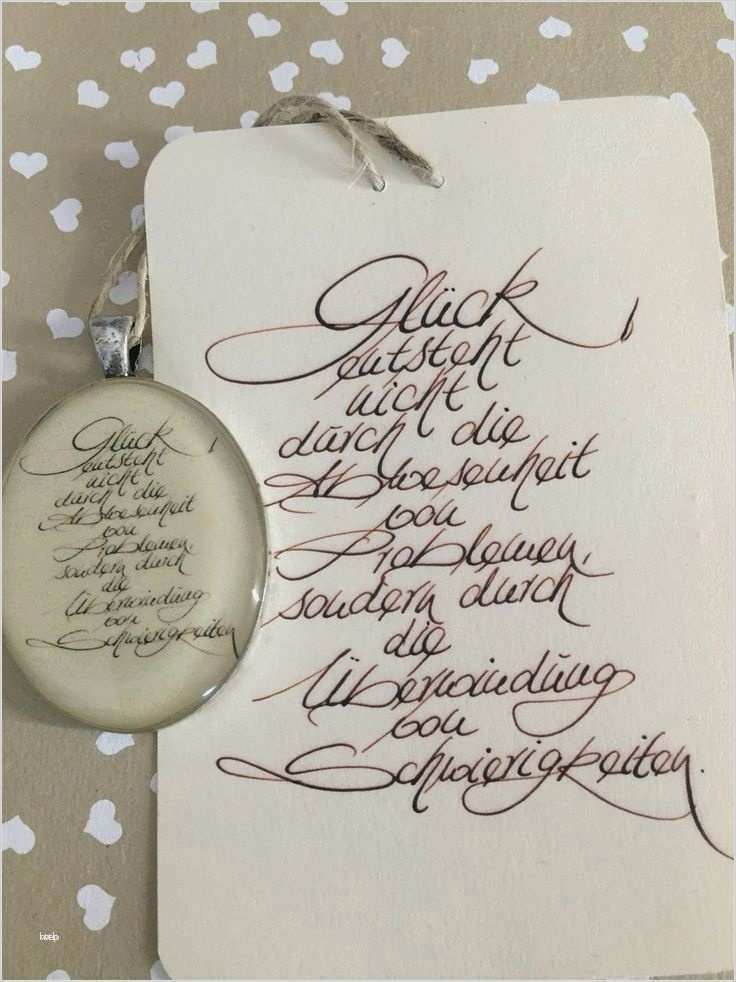 Glück
entsteht
nicht
durch die
Abwesenheit
von
Problemen,
sondern durch
die
Überwindung
von
Schwierigkeiten.
Glück
entsteht
nicht
durch die
Abwesenheit
von
Problemen,
sondern durch
die
Überwindung
von
Schwierigkeiten